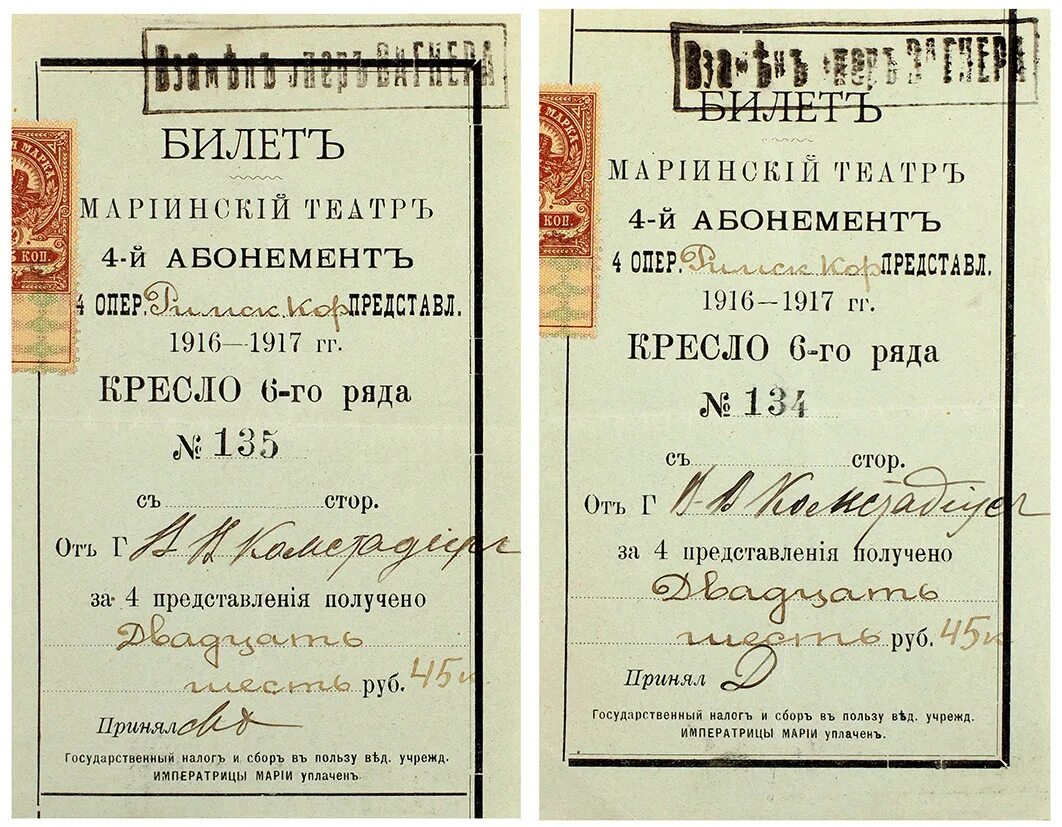 Взамѣнъ оперъ ВАГНЕРА
БИЛЕТЪ
МАРІИНСКІЙ ТЕАТРЪ
4-й АБОНЕМЕНТЪ
4 ОПЕР. Римск Кор ПРЕДСТАВЛ.
1916—1917 гг.
КРЕСЛО 6-го ряда
№ 135
съ стор.
Отъ Г В В Комстадіусъ
за 4 представленія получено
Двадцать
шесть руб. 45к
Принялъ
Государственный налогъ и сборъ въ пользу вѣд. учрежд.
ИМПЕРАТРИЦЫ МАРІИ уплаченъ.
МАРКА
КОП.
Взамѣнъ оперъ ВАГНЕРА
БИЛЕТЪ
МАРІИНСКІЙ ТЕАТРЪ
4-й АБОНЕМЕНТЪ
4 ОПЕР. Римск Кор ПРЕДСТАВЛ.
1916—1917 гг.
КРЕСЛО 6-го ряда
№ 134
съ стор.
Отъ Г В В Комстадіусъ
за 4 представленія получено
Двадцать
шесть руб. 45к
Принялъ Д
Государственный налогъ и сборъ въ пользу вѣд. учрежд.
ИМПЕРАТРИЦЫ МАРІИ уплаченъ.
МАРКА
КОП.